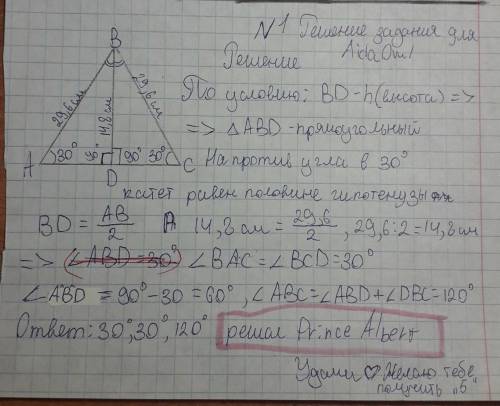 N1 Решение задания для
AidaOml
Решение
По условию: BD - h(высота) =>
=> △ABD - прямоугольный
Напротив угла в 30°
катет равен половине гипотенузы
BD = AB/2 14,8 см = 29,6/2, 29,6:2=14,8 см
=> ∠ABD = 30° ∠BAC = ∠BCD = 30°
∠ABD = 90° - 30 = 60°, ∠ABC = ∠ABD + ∠DBC = 120°
Ответ: 30°, 30°, 120° решал Prince Albert
Удачи ♡ Желаю тебе
получить "5"
B
29,6 см
14,8 см
29,6 см
A 30° 90° 90° 30° C
D